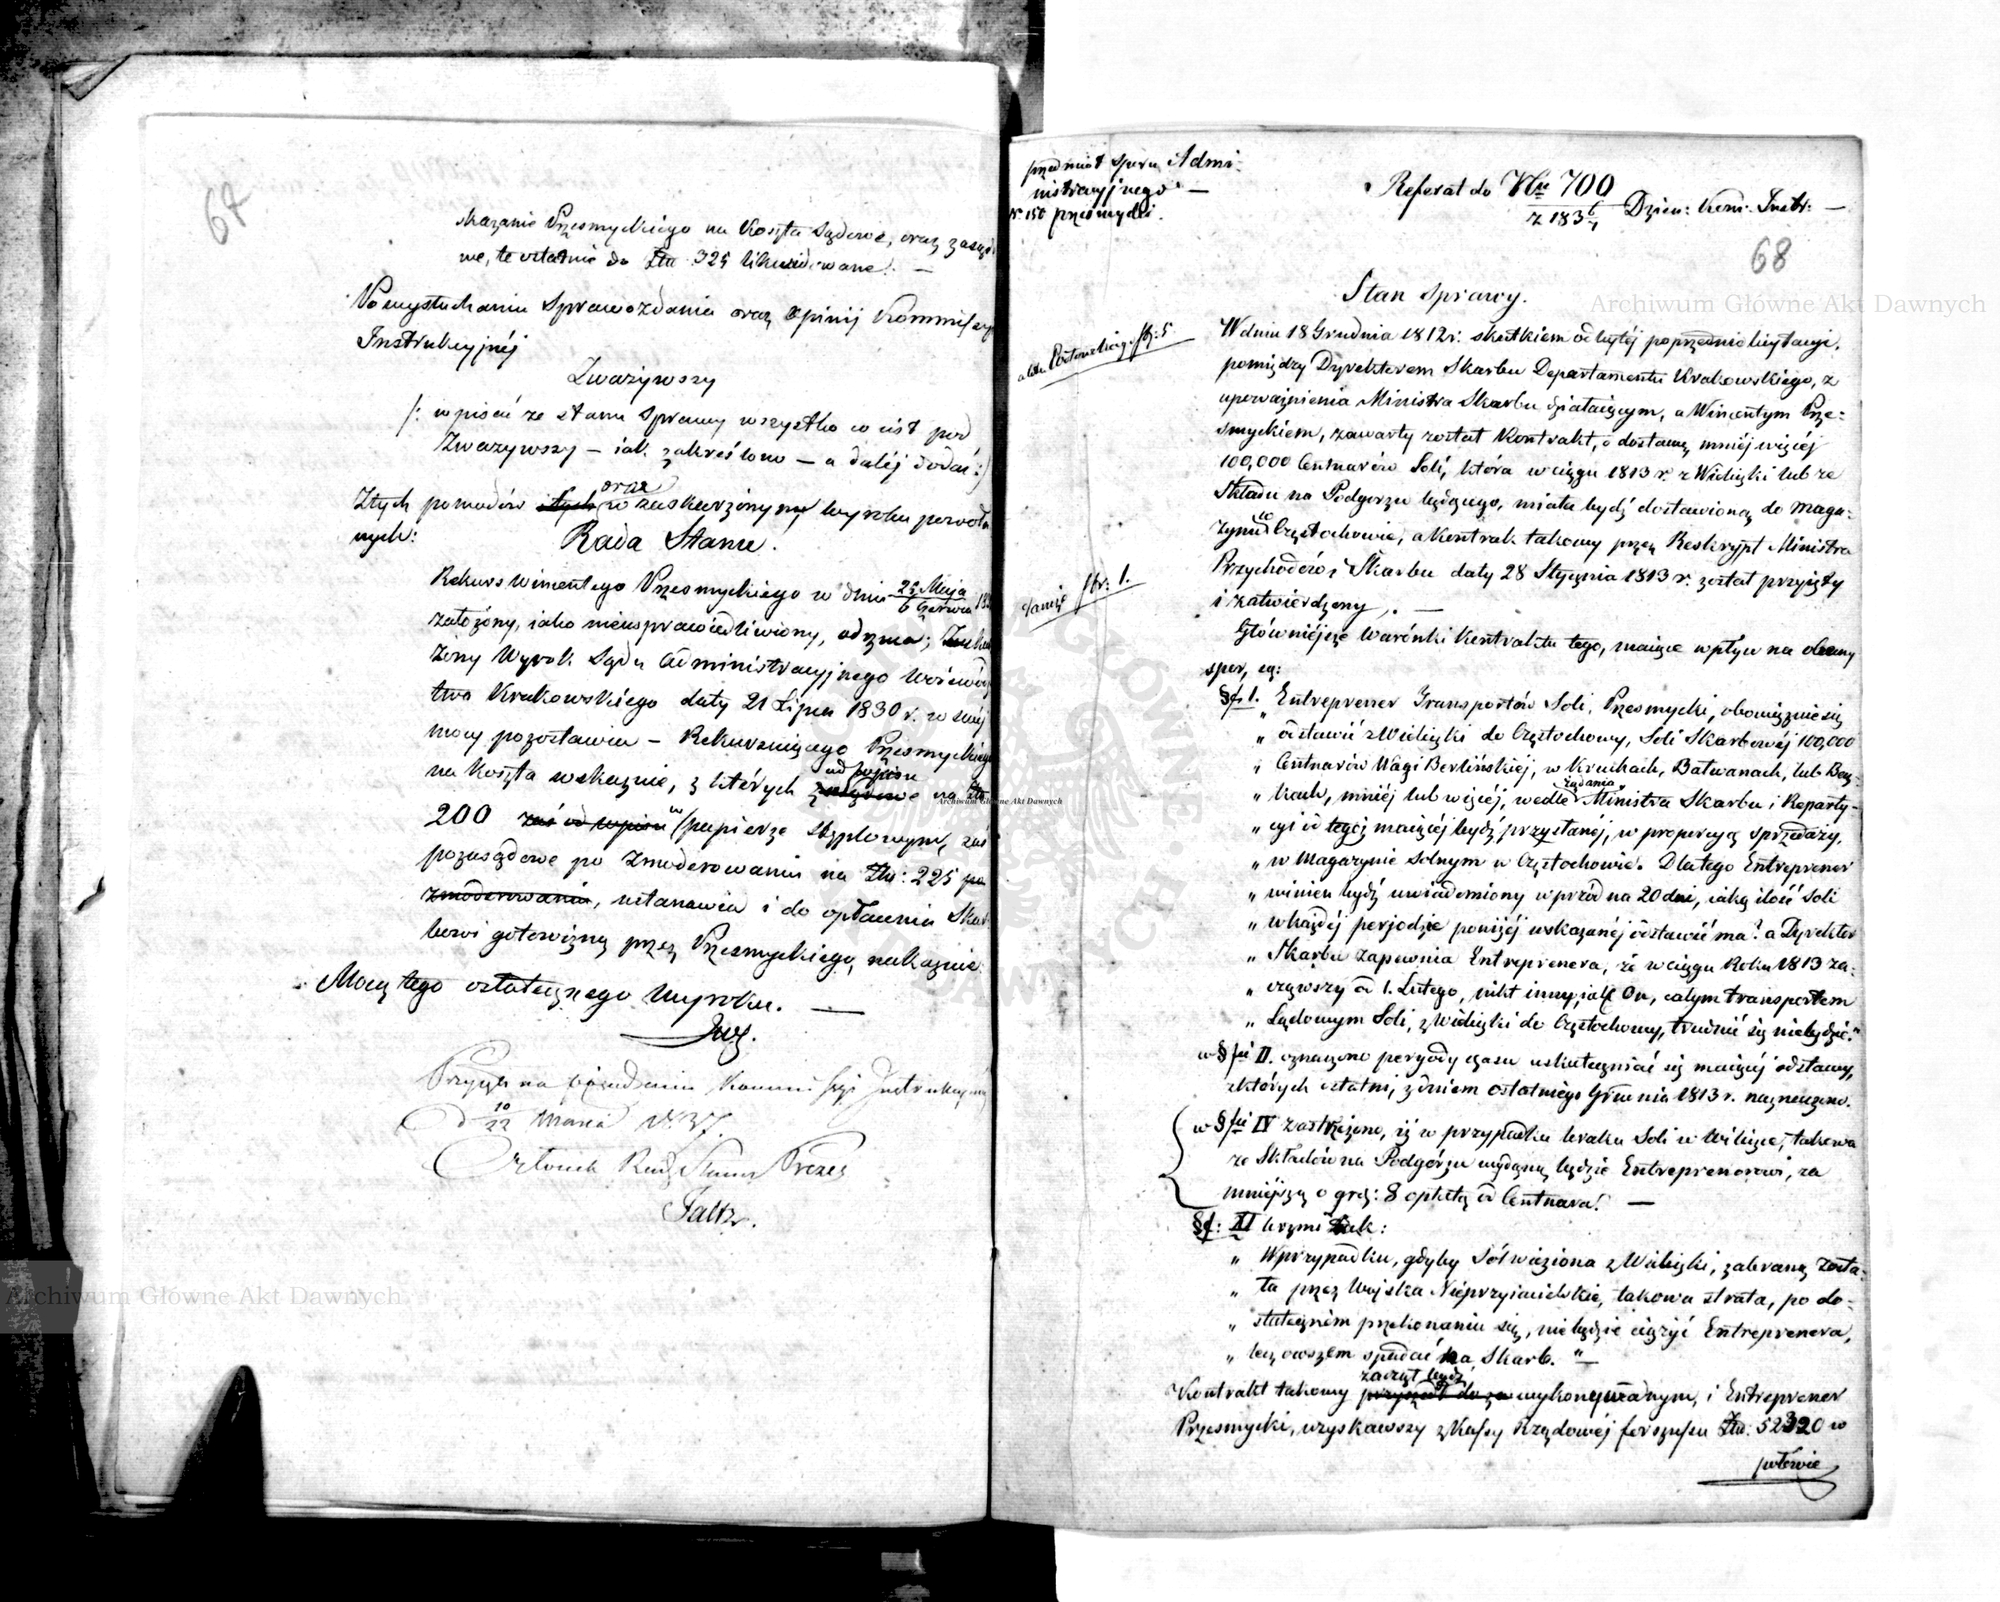 67
skazanie Przesmyckiego na Koszta Sądowe, oraz zasądo
we, te ostatnie do Złłł 325 likwidowane. —
Po wysłuchaniu Sprawozdania oraz Opinij Kommissyi
Instrukcyjnéj
Zważywszy
/: wpisać ze stanu Sprawy wszystko co iést pod
Zważywszy – iak zakreślono – a daléj dodać :/
Z tych powodów i tych oraz w zaskarżonym wyroku powoła
nych:
Rada Stanu.
Rekurs Wincentego Przesmyckiego w dniu 25 Maja / 6 Czerwca 18
założony, iako nieusprawiedliwiony, odrzuca;
żony Wyrok Sądu Administracyjnego Wojewódz
twa Krakowskiego daty 21 Lipca 1830 r. w swéj
mocy pozostawia – Rekurującego Przesmyckiego
na Koszta wskazuie, z których od wpisu na Złł
200 zaś od wpisu w papierze stęplowym, zaś
pozasądowe po zmoderowaniu na Złłł: 225 po
zmoderowaniu, ustanawia i do opłacenia Skar
bowi gotowizną przez Przesmyckiego, nakazuie.
Mocą tego ostatecznego Wyroku. —
Przyięto na posiedzeniu Kommissyi Instrukcyjnej
d 10/22 Marca 1837.
Członek Rady Stanu Prezes
Faltz.
przedmiot sporu Admi-
nistracyjnego —
Nr 150 przesmycki.
Referat do Nru 700 / z 1836/7 Dzien: Kom: Instr: —
68
Stan Sprawy.
akta Postowskiego str: 5
W dniu 18 Grudnia 1812 r: skutkiem odbytéj poprzednio licytacyi,
pomiędzy Dyrektorem Skarbu Departamentu Krakowskiego, z
upoważnienia Ministra Skarbu działaiącym, a Wincentym Prze-
smyckiem, zawarty został Kontrakt, o dostawę mniéj więcéj
100,000 Centnarów Soli, która w ciągu 1813 r. z Wieliczki lub ze
Składu na Podgorzu będącego, miała bydź dostawioną do maga-
zynu w Częstochowie, a Kontrakt takowy przez Reskrypt Ministra
Przychodów i Skarbu daty 28 Stycznia 1813 r: został przyięty
i zatwierdzony. —
tamże str: 1.
Głównieysze Warónki Kontraktu tego, maiące wpływ na obecny
spor, są:
§f 1. Entreprener Transportów Soli, Przesmycki, obowięzuie się
„ odstawić z Wieliczki do Częstochowy, Soli Skarbowéj 100,000
„ Centnarów Wagi Berlińskiéj, w Kruchach, Bałwanach, lub Becz-
„ kach, mniéj lub więcéj, wedle żądania Ministra Skarbu i Reparty-
„ cyi od tegoż maiącéj bydź przysłanéj, w proporcyą sprzedaży,
„ w Magazynie Solnym w Częstochowie. Dlatego Entreprener
„ winien bydź uwiadomiony wprzód na 20 dni, iaką ilość Soli
„ w każdéj peryodzie poniżéj wskazanéj odstawić ma? a Dyrektor
„ Skarbu zapewnia Entreprenera, że w ciągu Roku 1813 za-
„ cząwszy od 1. Lutego, nikt inny, iak On, całym transportem
„ Lądowym Soli, z Wieliczki do Częstochowy, trudnić się niebędzie."
w §fie II. oznaczono peryody czasu uskuteczniać się maiącéj odstawy,
z których ostatni, z dniem ostatniego Grudnia 1813 r. naznaczono.
w §fie IV zastrzeżono, iż w przypadku braku Soli w Wieliczce, takowa
ze Składów na Podgórzu wydaną będzie Entreprenerowi, za
mnieyszą o grsz: 8 opłatą od Centnara. —
§f: XI brzmi tak:
„ W przypadku, gdyby Sól wieziona z Wieliczki, zabraną zosta-
„ ła przez Woyska Nieprzyiacielskie, takowa strata, po do-
„ statecznem przekonaniu się, nie będzie ciążyć Entreprenera,
„ lecz owszem spadać na Skarb." —
Kontrakt takowy zaczął bydź wykonywanym, i Entreprener
Przesmycki, uzyskawszy z Kassy Rządowéj forszusu Złł: 52320 w
połowie